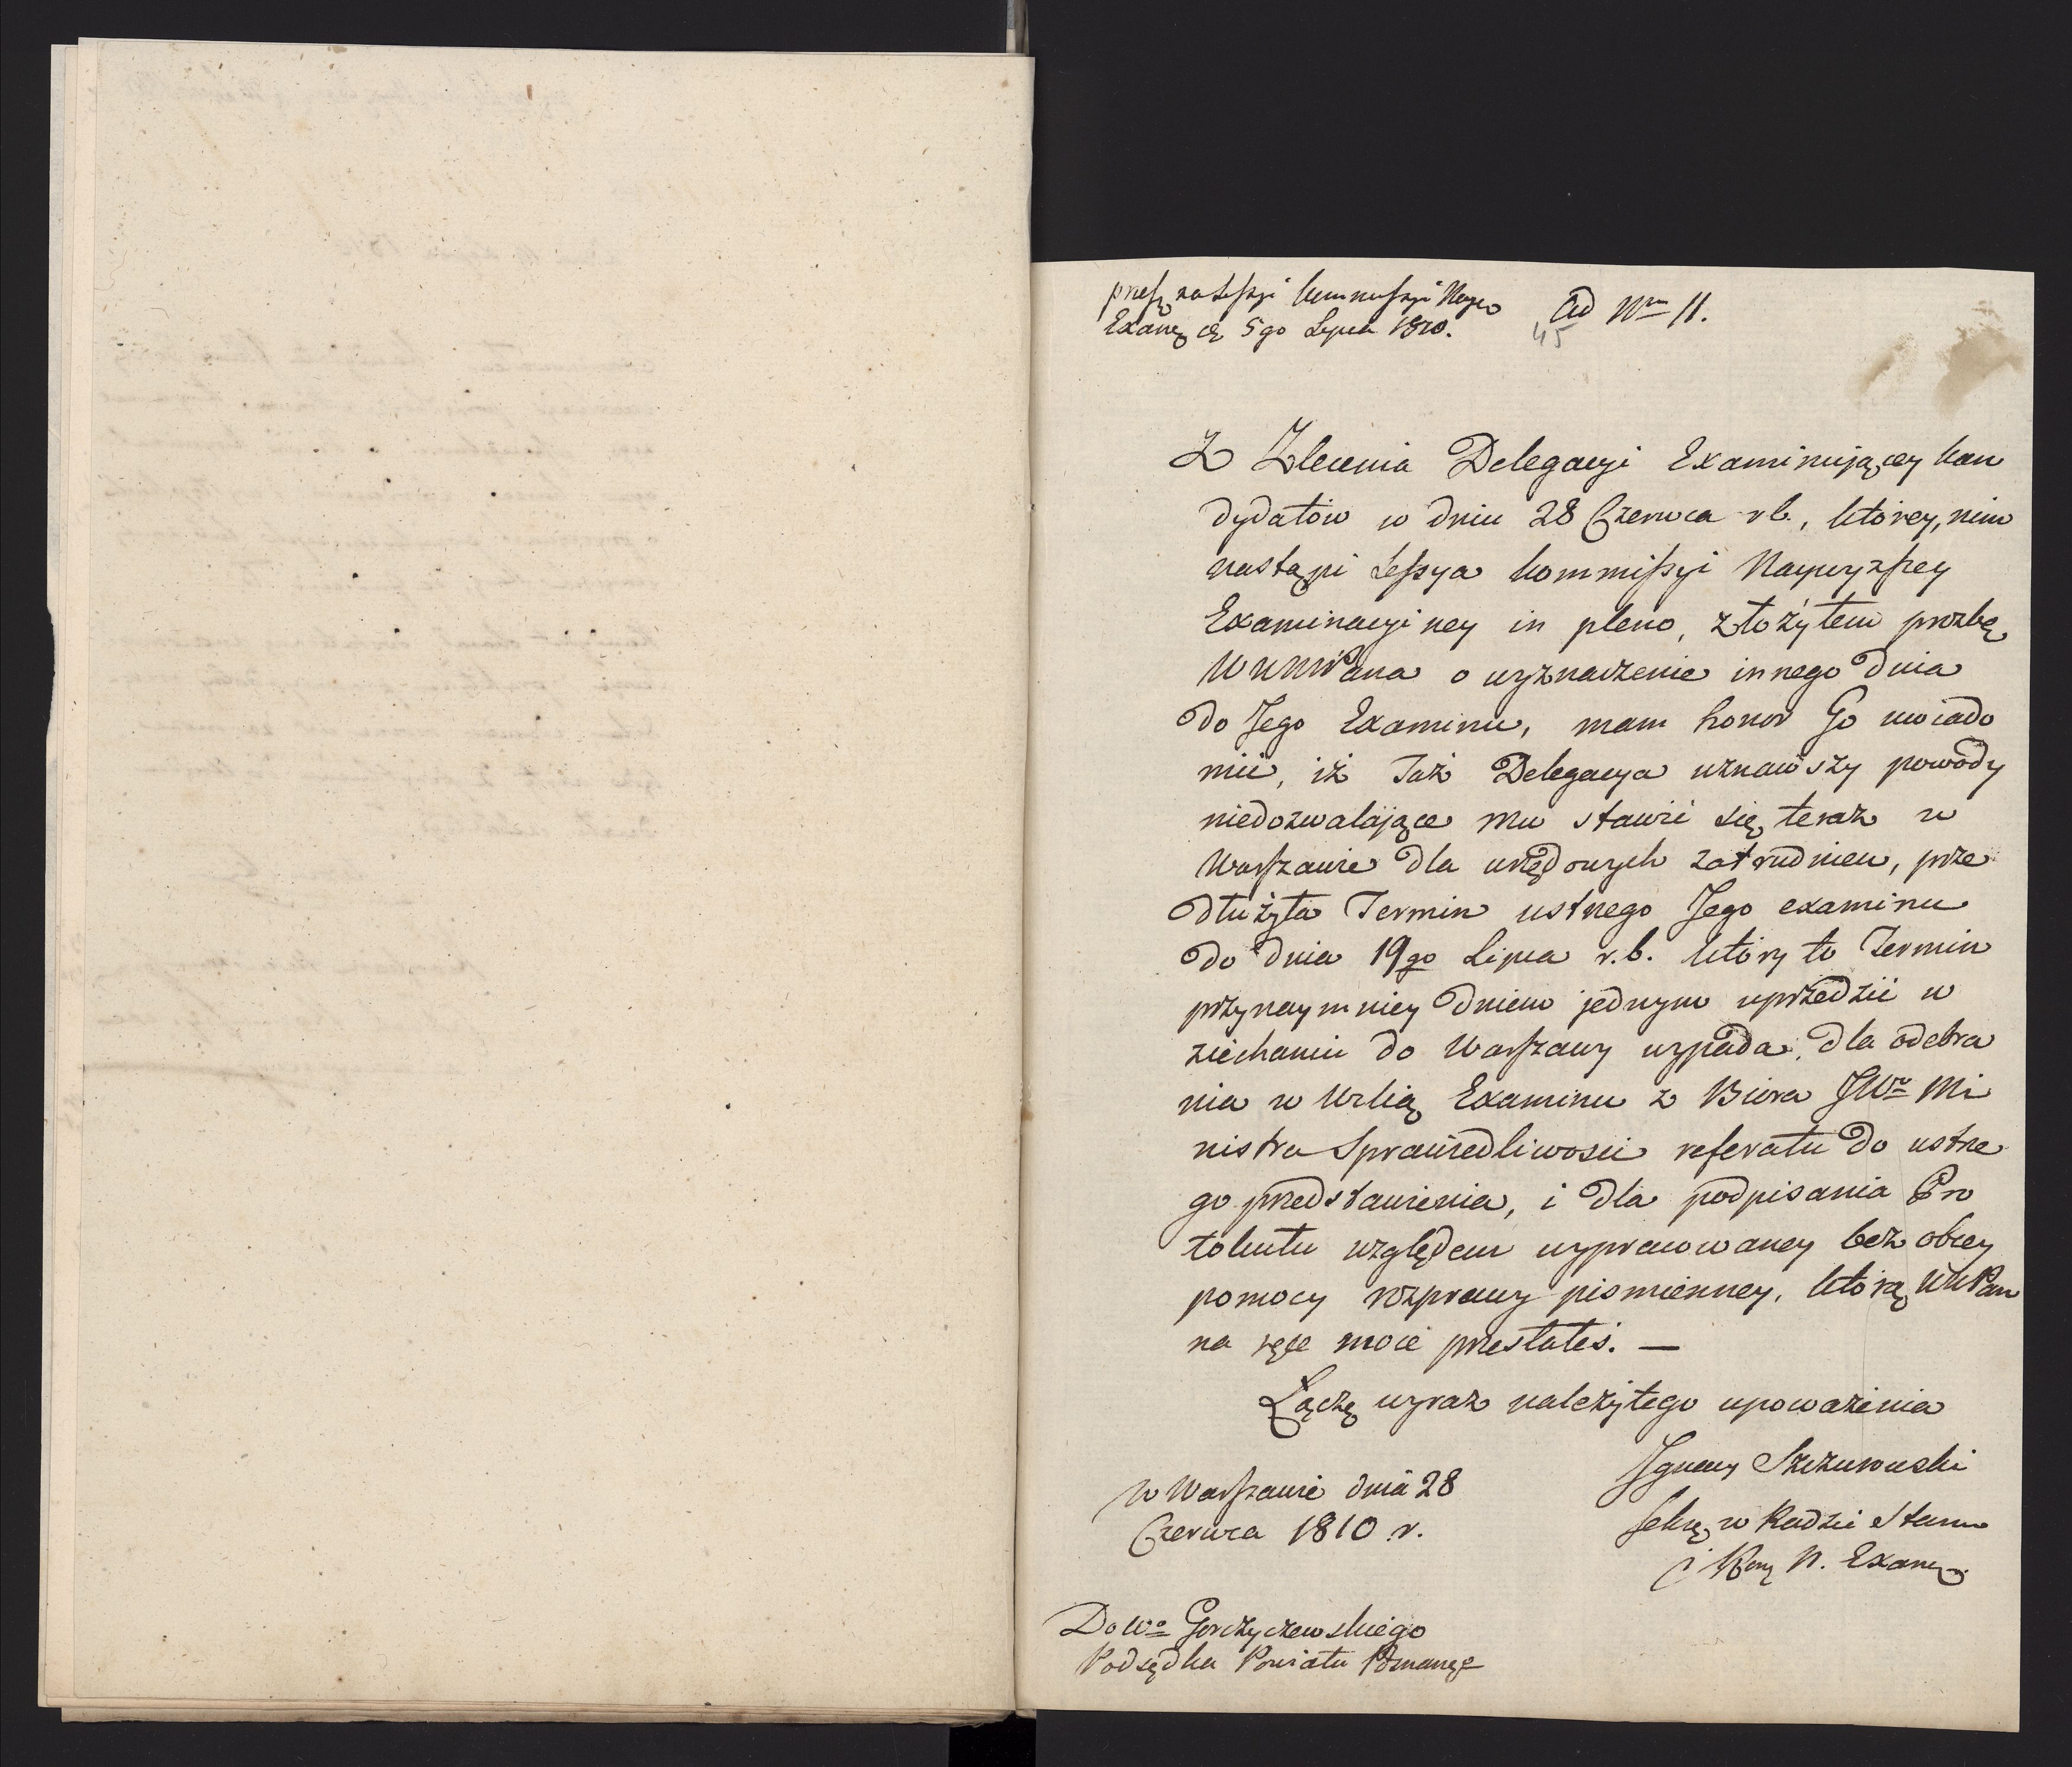 na Sessyi Kommissyi Naywo
Examę dę 5go Lipca 1810.
Ad Nrm 11.
45
Z Zlecenia Delegacyi Examinującey kan
dydatów w dniu 28 Czerwca rb., którey, nim
nastąpi Sessya Kommissyi Naywyzszey
Examinacyiney in pleno, złożyłem prozbę
WWMPana o wyznaczenie innego dnia
do Jego Examinu, mam honor Go uwiado
mić, iż Taż Delegacya uznawszy powody
niedozwalaiące mu stawić się teraz w
Warszawie dla urzędowych zatrudnień, prze
dłużyła Termin ustnego Jego examinu
do dnia 19go Lipca r.b. który to Termin
przynaymniey dniem jednym uprzedzić w
ziechaniu do Warszawy wypada, dla odebra
nia w Wilią Examinu z Biora JWo Mi
nistra Sprawiedliwości referatu do ustne
go przedstawienia, i dla podpisania Pro
tokułu względem wypracowaney bez obcey
pomocy rozprawy pismienney, którą WMPan
na ręce moie przesłałeś. —
Łączę wyraz należytego upoważenia
Ignacy Szczurowski
Sekrę w Radzie Stanu
i Komę N. Examę
w Warszawie dnia 28
Czerwca 1810 r.
Do Wo Gorczyczewskiego
Podsędka Powiatu Poznańgo